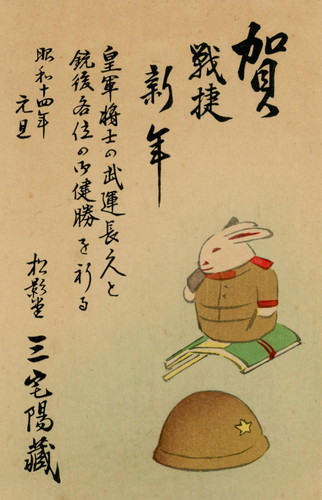 賀
戦捷
新年
皇軍将士の武運長久と
銃後各位の御健勝を祈る
昭和十四年
元旦
松影堂
三宅陽藏